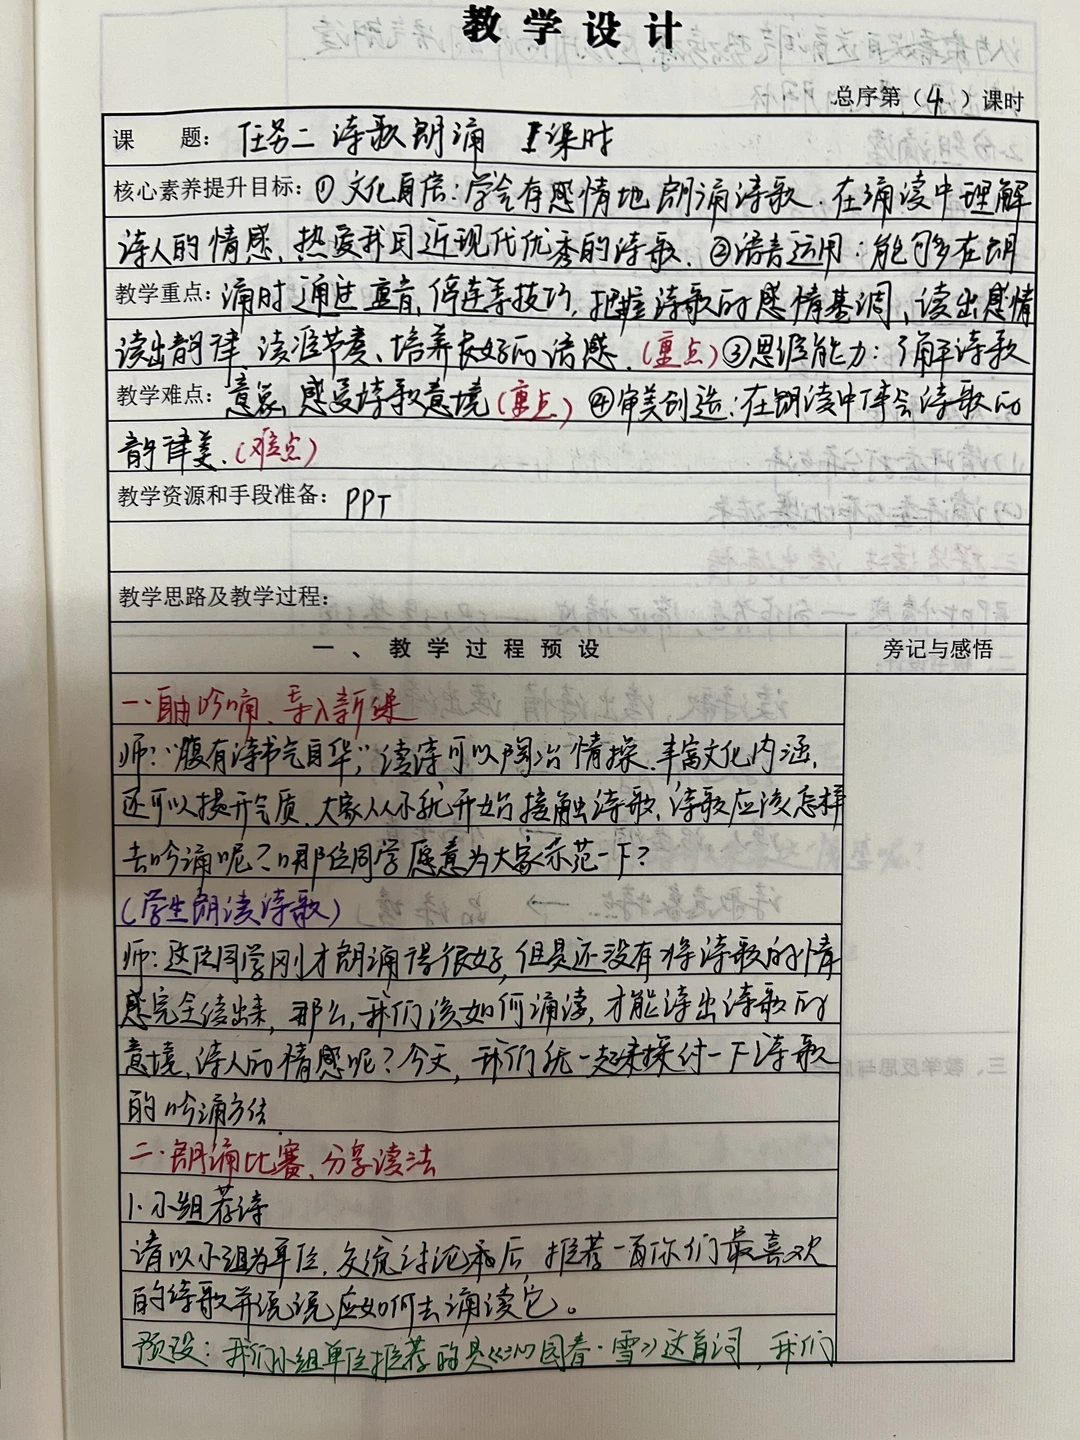 教学设计
总序第（4）课时
课 题：任务二 诗歌朗诵 1课时
核心素养提升目标：①文化自信：学会有感情地朗诵诗歌．在诵读中理解
诗人的情感，热爱我国近现代优秀的诗歌．②语言运用：能够在朗
教学重点：诵时通过重音，停连等技巧，把握诗歌的感情基调，读出感情
读出韵律，读准节奏、培养良好的语感．（重点）③思维能力：了解诗歌
教学难点：意象，感受诗歌意境（重点）④审美创造：在朗读中体会诗歌的
韵律美．（难点）
教学资源和手段准备：PPT
教学思路及教学过程：
一、教学过程预设
旁记与感悟
一．自由吟诵、导入新课
师："腹有诗书气自华"，读诗可以陶冶情操．丰富文化内涵，
还可以提升气质．大家从小就开始接触诗歌，诗歌应该怎样
去吟诵呢？哪位同学愿意为大家示范一下？
（学生朗读诗歌）
师：这位同学刚才朗诵得很好，但是还没有将诗歌的情
感完全读出来，那么，我们该如何诵读，才能读出诗歌的
意境，诗人的情感呢？今天，我们就一起来探讨一下诗歌
的吟诵方法．
二．朗诵比赛、分享读法
1．小组荐诗
请以小组为单位，交流讨论和后，推荐一首你们最喜欢
的诗歌并说说应如何去诵读它。
预设：我们小组单位推荐的是《沁园春·雪》这首词，我们